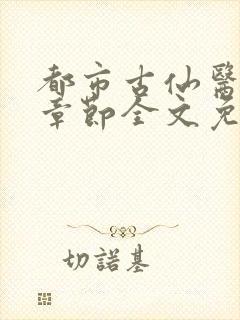 都市古仙醫
章節全文免
切諾基